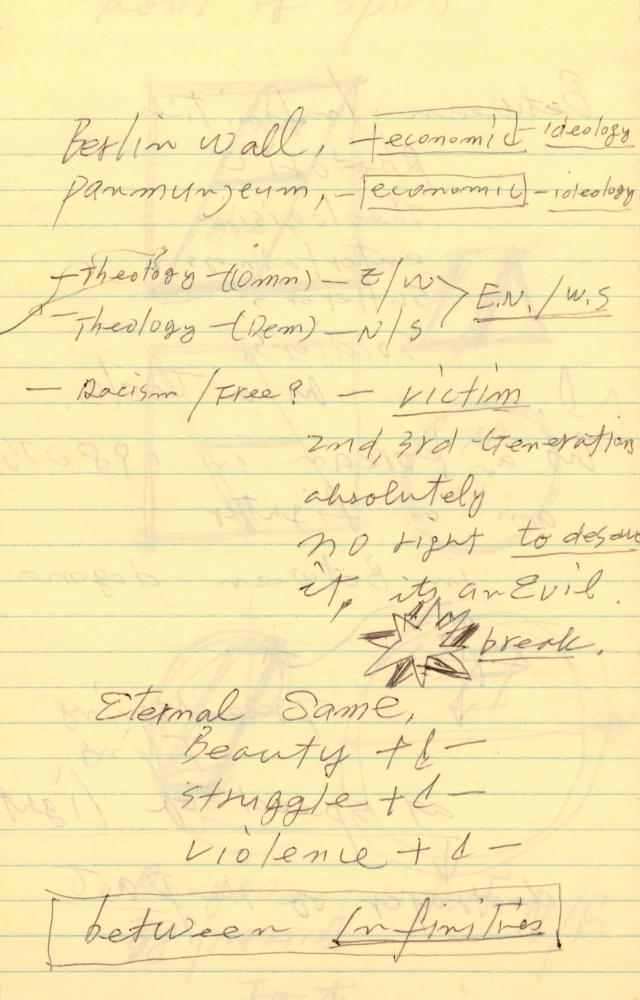 Berlin wall, + economic - ideology
Panmunjeum, - economic - ideology
+ Theology - (Omn) - E/W
E.N. / W.S
- Theology - (Dem) - N/S
- Racism / Free? - victim
2nd, 3rd - Generation
absolutely
no right to
it, its an Evil.
break.
Eternal Same,
Beauty + & -
struggle + & -
violence + & -
between Infinities